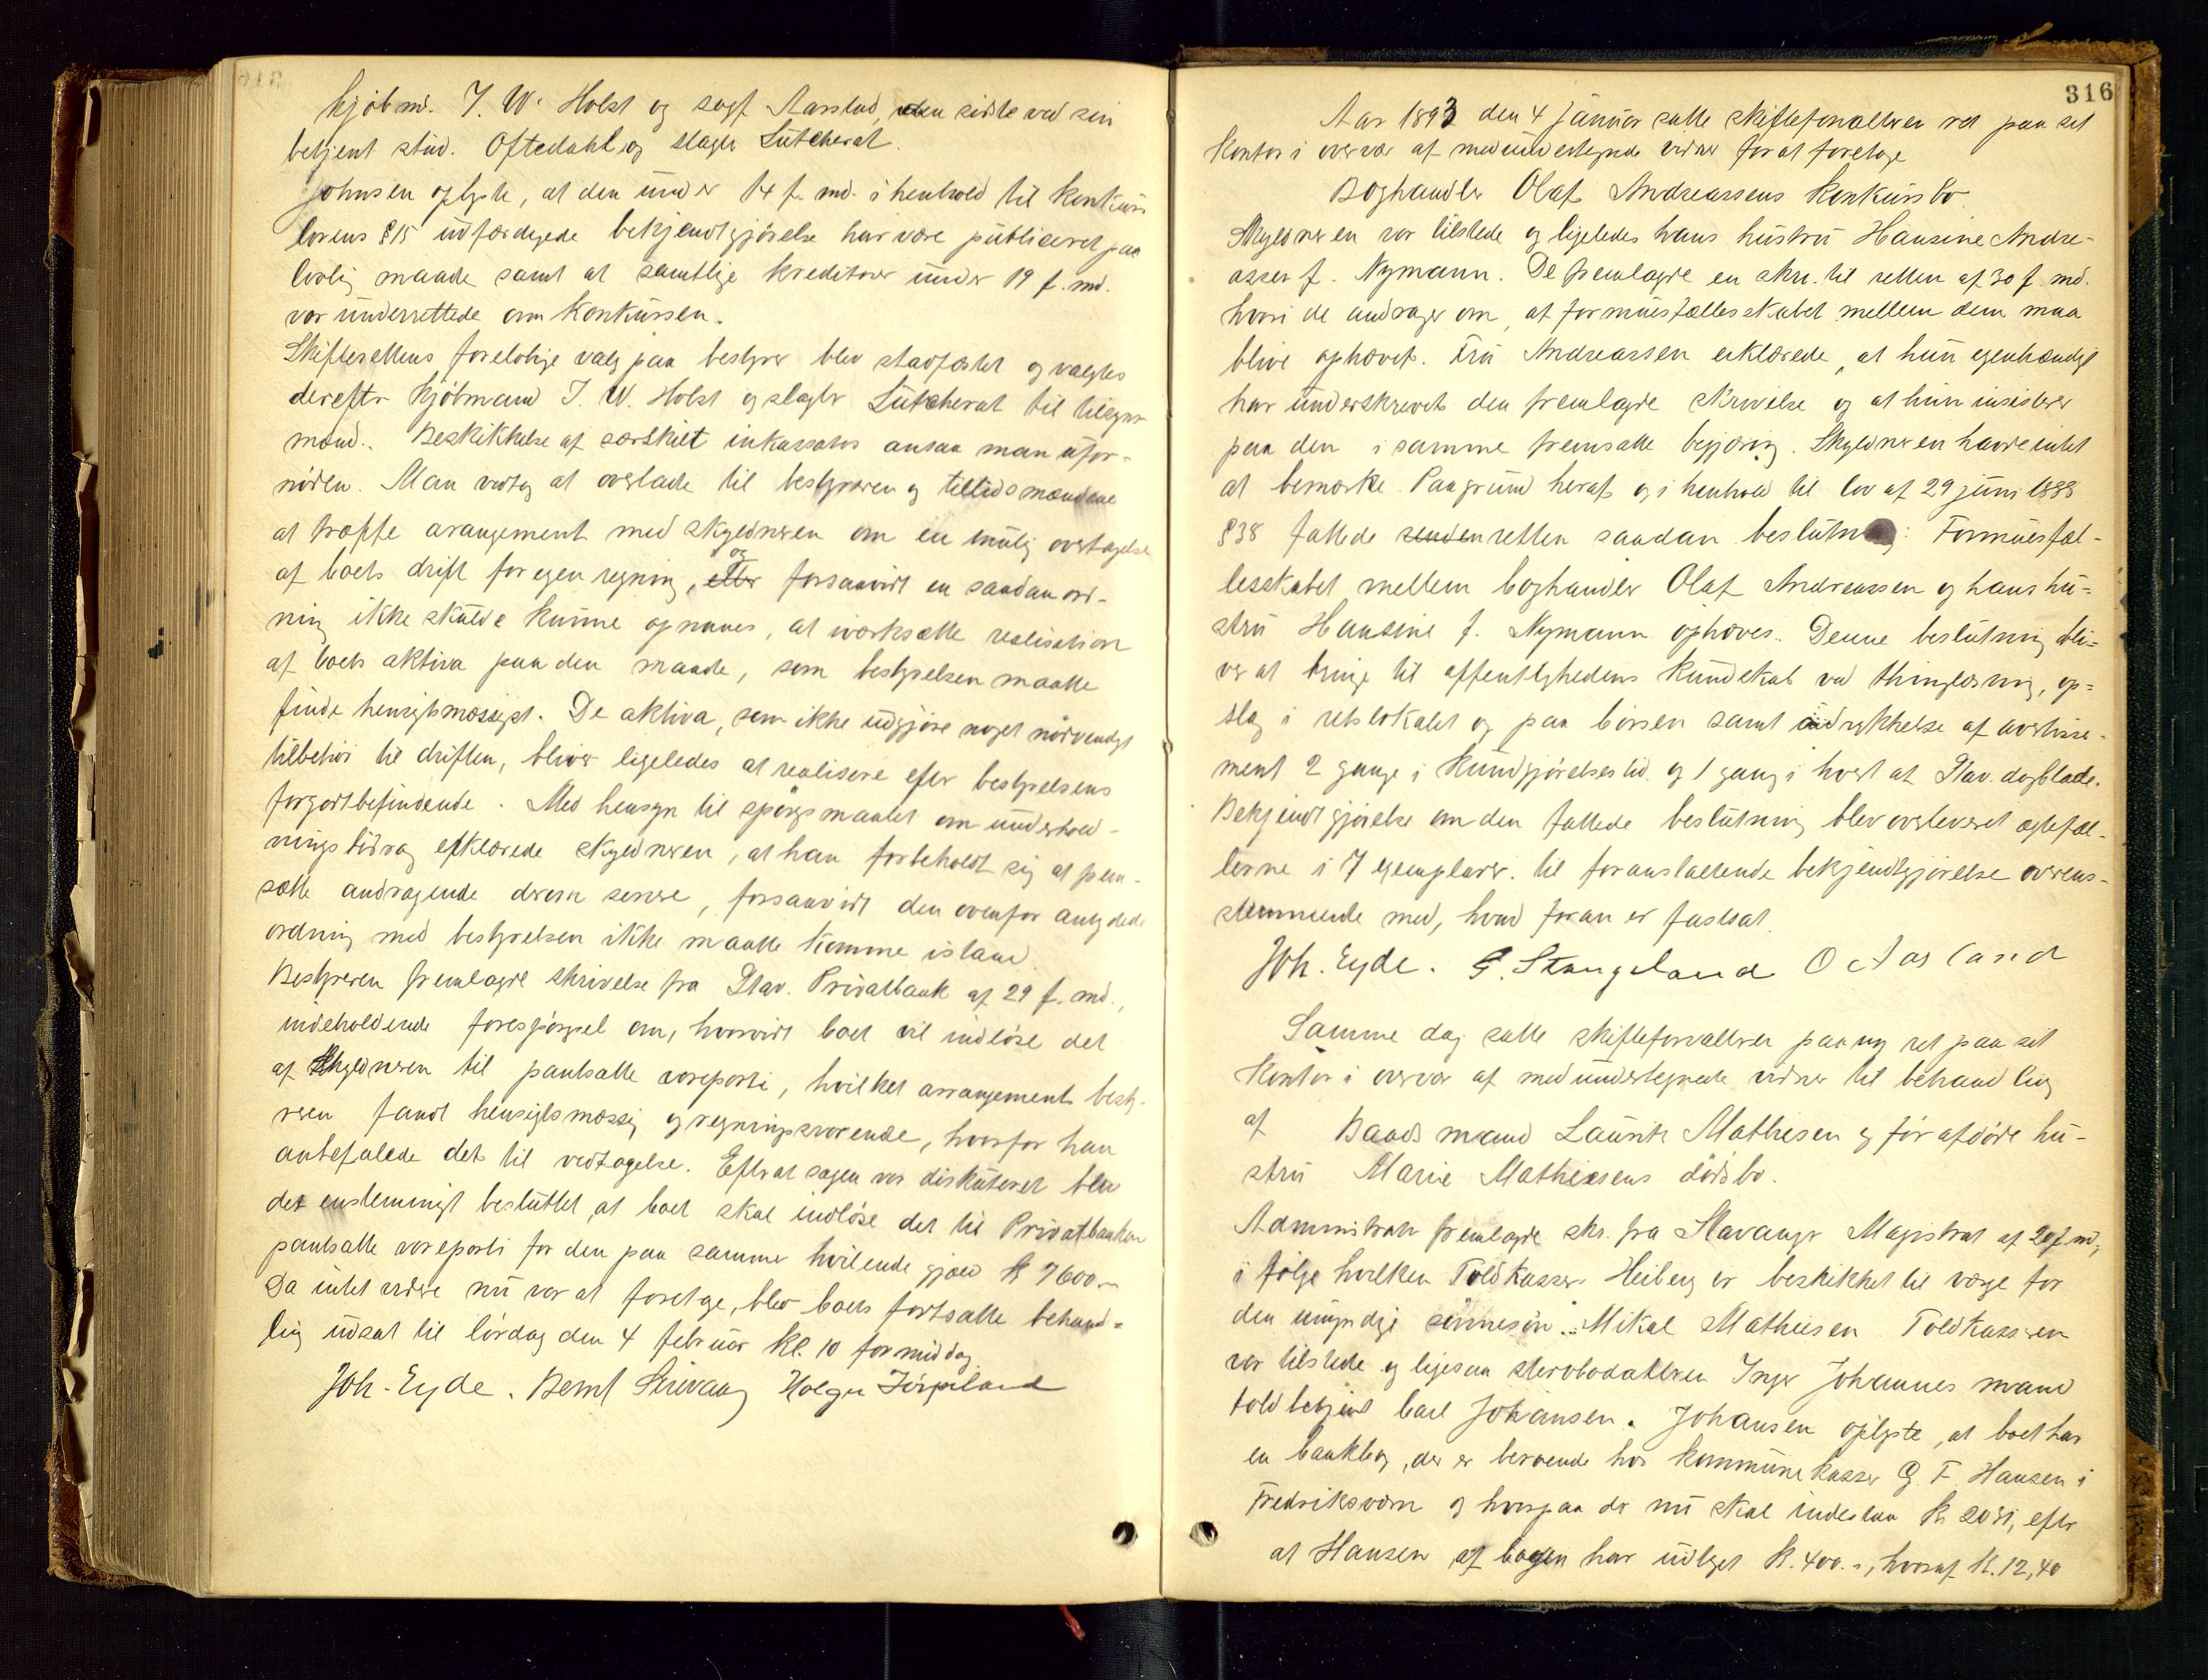 kjöbmd. I. W. Holst og sagf. Aarstad, den sidste ved sin
betjent stud. Oftedahl og slagter Lütcherat.
Johnsen oplyste, at den under 14 f. md. i henhold til konkurs
lovens §15 udfærdigede bekjendtgjørelse har være publiceret paa
lovlig maade samt at samtlige kreditorer under 19 f. md.
var underrettede om konkursen.
Skifterettens foreløbige valg paa bestyrer blev stadfæstet og valgtes
derefter kjöbmand I. W. Holst og slagter Lütcherat til tilsyns-
mænd. Beskikkelse af særskilt inkassator ansaa man ufor-
nöden. Man vedtog at overlade til bestyreren og tillidsmændene
at træffe arangement med skyldneren om en mulig overtagelse
af boets drift for egen regning, eller og forsaavidt en saadan ord-
ning ikke skulde kunne opnaaes, at iværksætte realisation
af boets aktiva paa den maade, som bestyrelsen maatte
finde hensigtsmæssigst. De aktiva, som ikke udgjöre noget nödvendigt
tilbehör til driften, bliver ligeledes at realisere efter bestyrelsens
forgodtbefindende. Med hensyn til spörgsmaalet om underhold-
ningsbidrag erklærede skyldneren, at han forbeholdt sig at frem-
sætte andragende derom senere, forsaavidt den ovenfor antydede
ordning med bestyrelsen ikke maatte komme istand.
Bestyreren fremlagde skrivelse fra Stav. Privatbank af 29 f. md.,
indeholdende forespörgsel om, hvorvidt boet vil indlöse det
af skyldneren til pantsatte vareparti, hvilket arrangement besty-
reren fandt hensigtsmæssig og regningssvarende, hvorfor han
anbefalede det til vedtagelse. Efterat sagen var diskuteret blev
det enstemmigt besluttet, at boet skal indlöse det til Privatbanken
pantsatte vareparti for den paa samme hvilende gjæld Kr 7600.-
Da intet videre nu var at foretage, blev boets fortsatte behand-
ling udsat til lördag den 4 februar kl. 10 formiddag
Joh. Eyde. Bernt Holger Jörpeland
316
Aar 1893 den 4 Januar satte skifteforvalteren ret paa sit
Kontor i overvær af medundertegnede vidner for at foretage
Boghandler Olaf Andreassens konkursbo.
Skyldneren var tilstede og ligeledes hans hustru Hansine Andre-
assen f. Nymann. De fremlagde en skr. til retten af 30 f. md.
hvori de andrager om, at formuesfællesskabet mellem dem maa
blive ophævet. Fru Andreassen erklærede, at hun egenhændigt
har underskrevet den fremlagde skrivelse og at hun insisterer
paa den i samme fremsatte begjæring. Skyldneren havde intet
at bemærke. Paa grund heraf og i henhold til lov af 29 juni 1888
§38 fattede retten saadan beslutning: Formuesfæl-
lesskabet mellem boghandler Olaf Andreassen og hans hu-
stru Hansine f. Nymann ophæves. Denne beslutning bli-
ver at bringe til offentlighedens kundskab ved thinglæsning, op-
slag i retslokalet og paa börsen samt indrykkelse af avertisse-
ment 2 gange i Kundgjörelsestid. og 1 gang i hvert af Stav. dagblade.
Bekjendtgjörelse om den fattede beslutning blev overleveret ægtefæl-
lerne i 7 exemplarer til foranstaltende bekjendtgjörelse overens-
stemmende med, hvad foran er fastsat.
Joh. Eyde. G. Stangeland O Aasland
Samme dag satte skifteforvalteren paany ret paa sit
Kontor i overvær af medundertegnede vidner til behandling
af Baadsmand Laurits Mathisen og för afdöde hu-
stru Marie Mathiesens dödsbo.
Administrator fremlagde skr. fra Stavanger Magistrat af 20 f. m.,
i fölge hvilken Toldkasserer Heiberg er beskikket til værge for
den umyndige sönnesön Mikal Mathiesen. Toldkassereren
var tilstede og ligesaa stervbodatteren Inger Johannes mand
toldbetjent Carl Johansen. Johansen oplyste, at boet har
en bankbog, der er beroende hos kommunekasser G. F. Hansen i
Fredriksværn og hvorpaa der nu skal indestaa Kr 2031, efter
at Hansen af bogen har udtaget Kr. 400.-, hvoraf Kr. 12,40